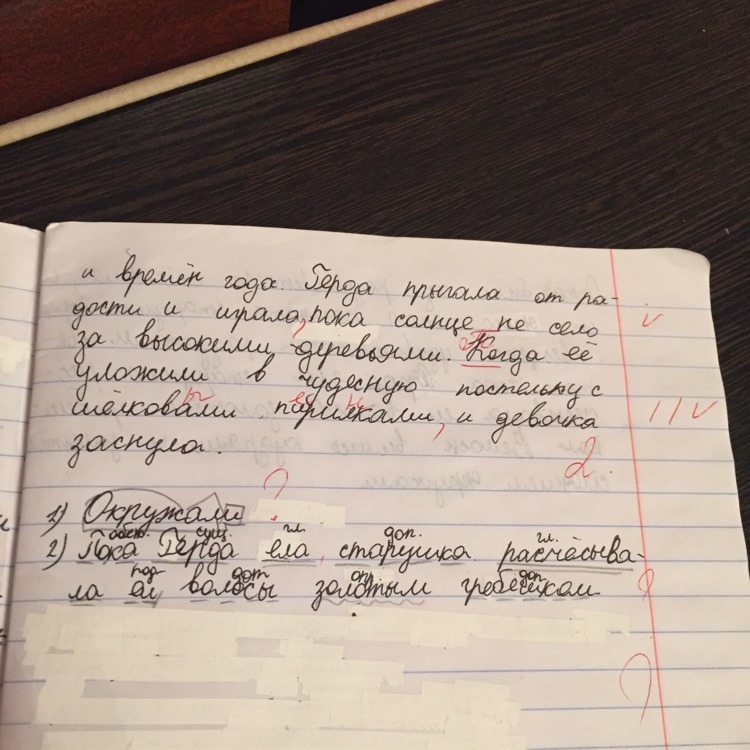 и времён года. Герда прыгала от ра-
дости и играла, пока солнце не село
за высокими деревьями. Когда её
уложили в чудесную постельку с
шёлковами перилками, и девочка
заснула.
2
1) Окружали ?
обст. сущ. гл. доп. гл.
2) Пока Герда ела, старушка расчёсыва-
под. доп. опр. доп.
ла ей волосы золотым гребешком.